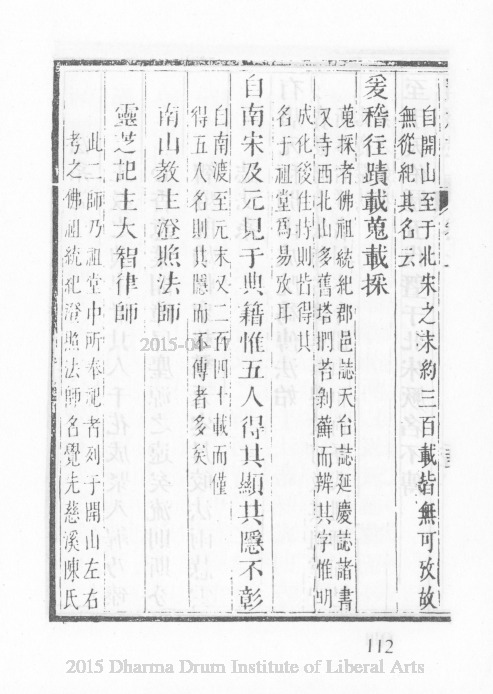 自開山至于北宋之末約三百載皆無可攷故
無從紀其名云
爰稽往蹟載蒐載採
蒐採者佛祖統紀郡邑誌天台誌延慶誌諸書
又寺西北山多舊塔捫苔剝蘚而辨其字惟明
成化後住持則皆得其
名于祖堂爲易攷耳
自南宋及元見于典籍惟五人得其顯其隱不彰
自南渡至元末又二百四十載而僅
得五人名則其隱而不傳者多矣
南山教主澄照法師
靈芝記主大智律師
此二師乃祖堂中所奉祀者列于開山左右
考之佛祖統紀澄照法師名覺先慈溪陳氏
2015-04-17
112
2015 Dharma Drum Institute of Liberal Arts